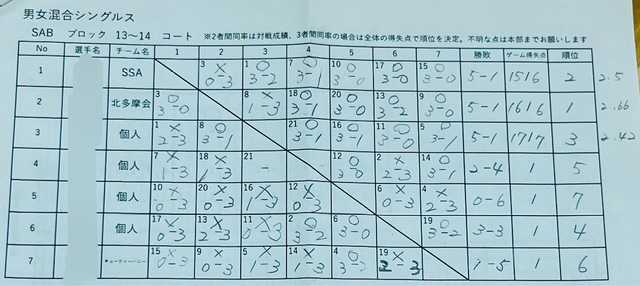 男女混合シングルス
SAB ブロック 13～14 コート ※2者間同率は対戦成績、3者間同率の場合は全体の得失点で順位を決定。不明な点は本部までお願いします
No 選手名 チーム名 1 2 3 4 5 6 7 勝敗 ゲーム得失点 順位
1 SSA 3 × 0-3 1 ○ 3-2 7 ○ 3-1 10 ○ 3-0 17 ○ 3-0 15 ○ 3-0 5-1 1516 2 2.5
2 北多摩会 3 ○ 3-0 8 × 1-3 18 ○ 3-1 20 ○ 3-0 13 ○ 3-2 9 ○ 3-0 5-1 1616 1 2.66
3 個人 1 × 2-3 8 ○ 3-1 21 ○ 3-1 16 ○ 3-1 11 ○ 3-0 5 3-1 5-1 1717 3 2.42
4 個人 7 × 1-3 18 × 1-3 21 - 12 ○ 3-0 2 × 2-3 14 ○ 3-1 2-4 1 5
5 個人 10 × 0-3 20 × 0-3 16 × 1-3 12 × 0-3 6 × 0-3 4 × 2-3 0-6 1 7
6 個人 17 × 0-3 13 × 2-3 11 × 0-3 2 ○ 3-2 6 ○ 3-0 19 ○ 3-2 3-3 1 4
7 15 × 0-3 9 × 0-3 5 × 1-3 14 × 1-3 4 ○ 19 × 2-3 1-5 1 6